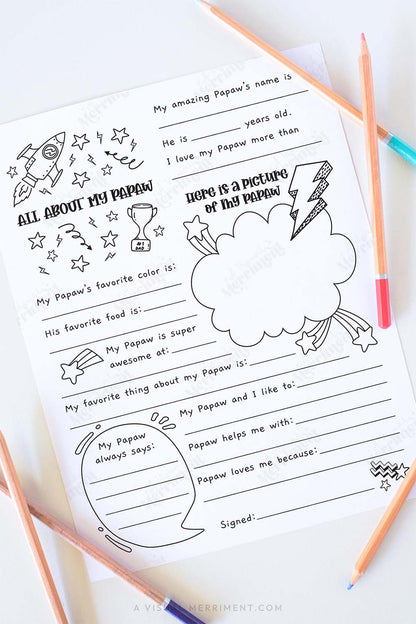 My amazing Papaw's name is
He is ________ years old.
I love my Papaw more than
ALL ABOUT MY PAPAW
Here is a picture
of my PAPAW
#1
DAD
My Papaw's favorite color is:
His favorite food is:
My Papaw is super
awesome at:
My favorite thing about my Papaw is:
My Papaw and I like to:
My Papaw
always says:
Papaw helps me with:
Papaw loves me because:
Signed:
A VISIT TO MERRIMENT.COM